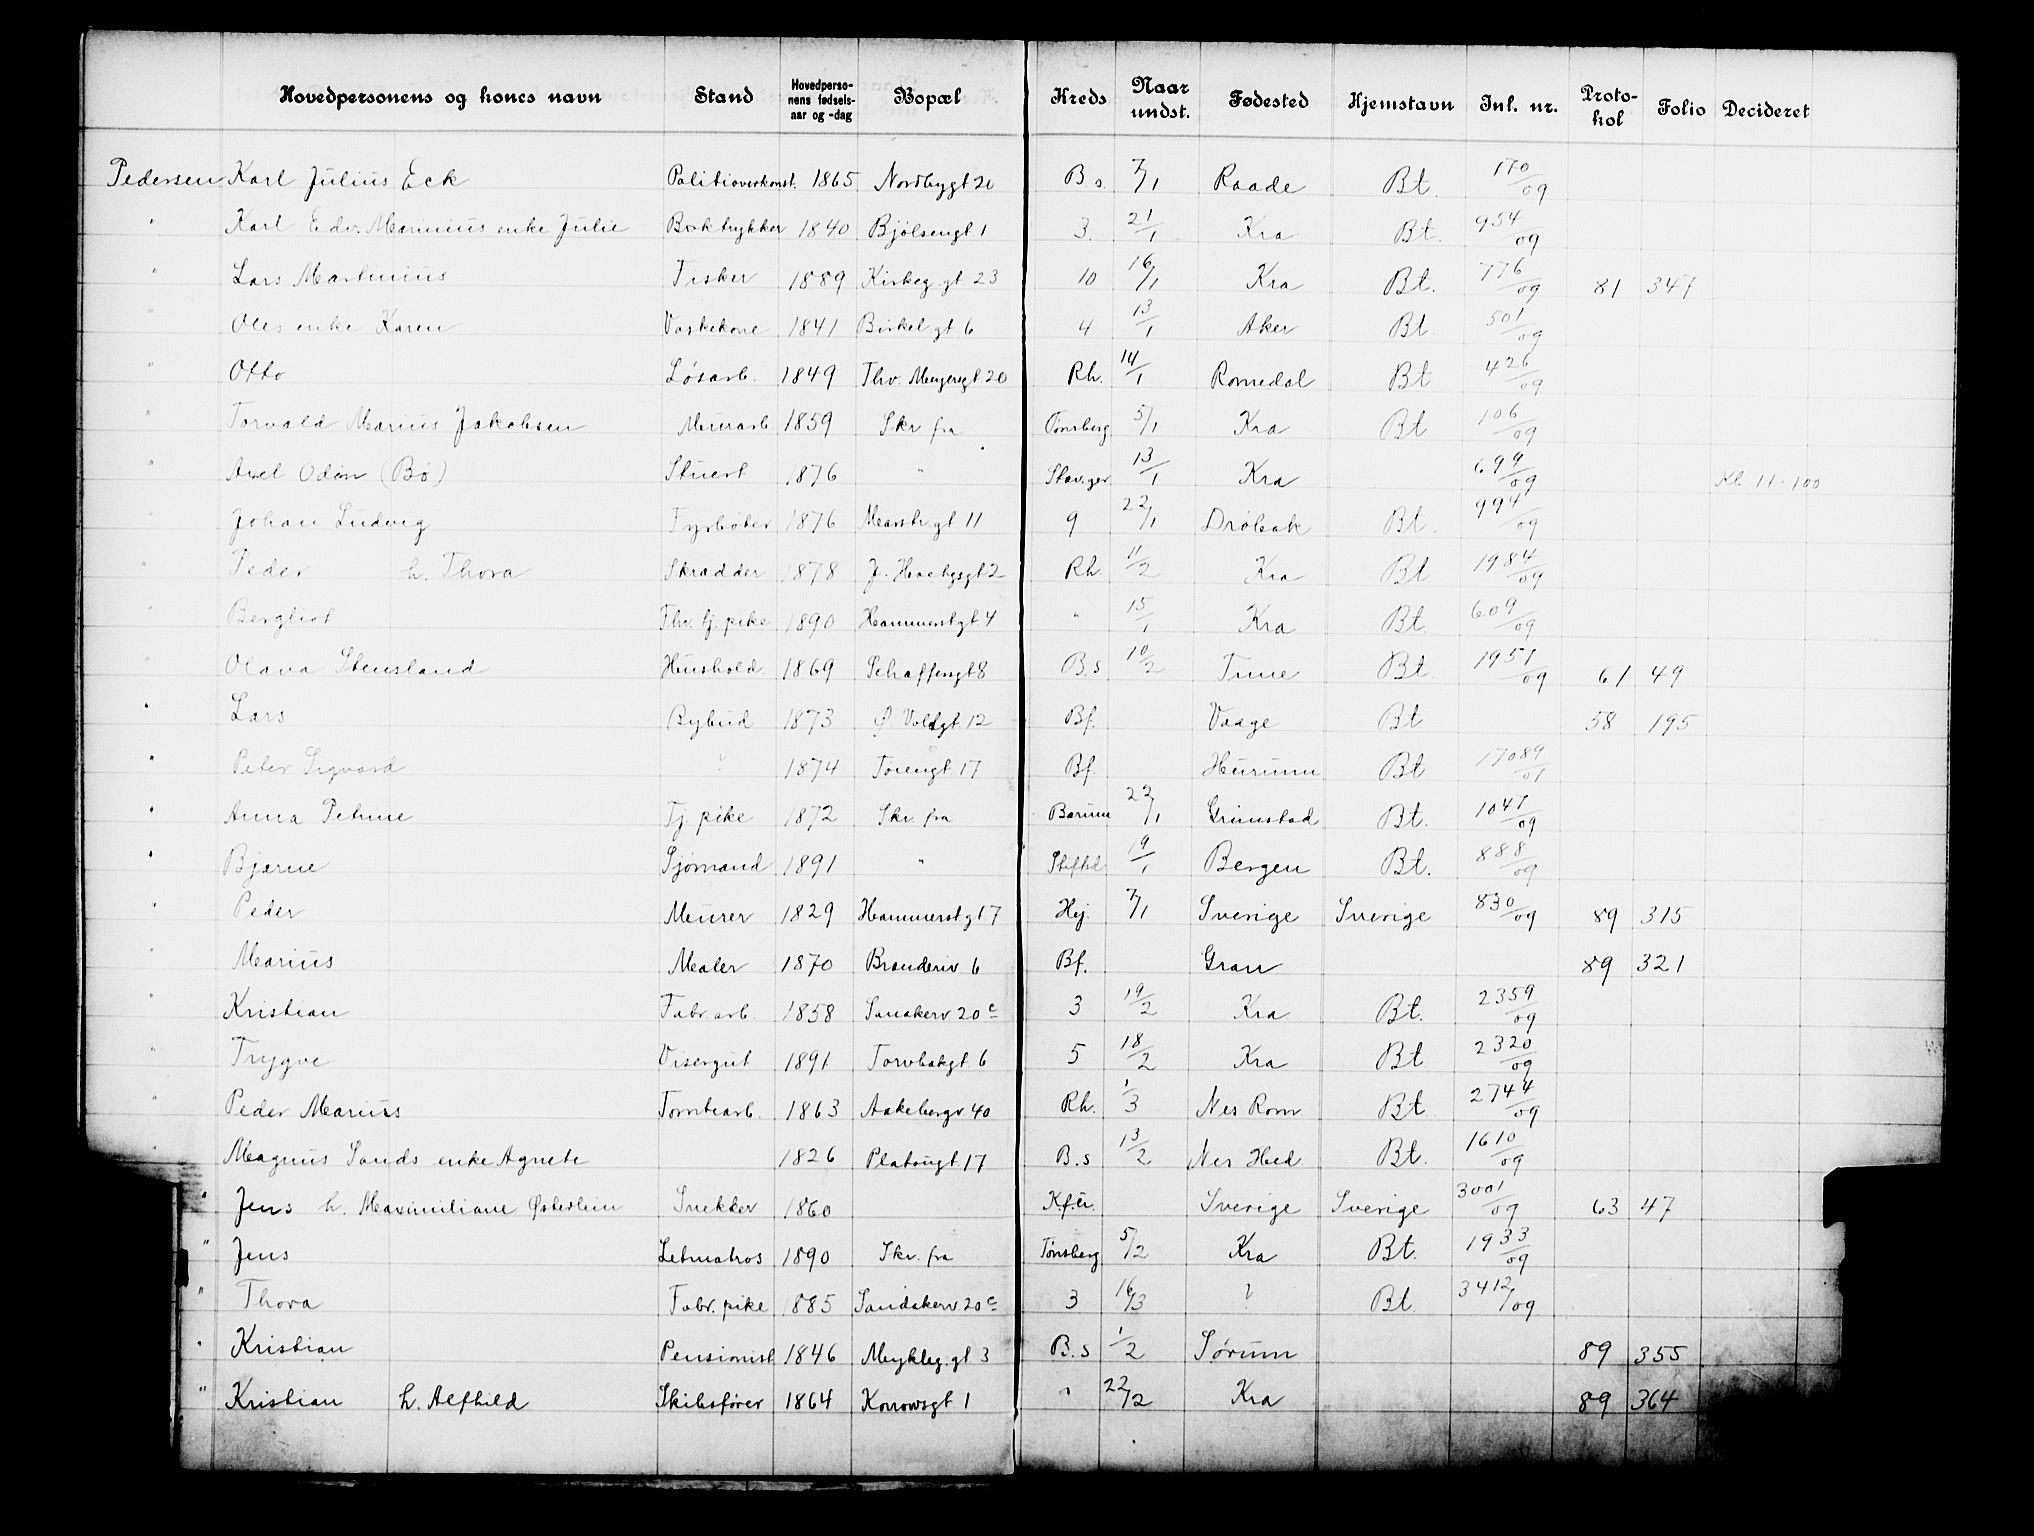 Hovedpersonens og kones navn Stand Hovedpersonens fødselsaar og -dag Bopæl Kreds Naar undst. Fødested Hjemstavn Inl. nr. Protokol Folio Decideret
Pedersen Karl Julius Eck Politioverkonst. 1865 Nordbygt 20 B.s. 7/1 Raade Bt. 170/09
" Karl Edv. Marinius enke Julie Boktrykker 1840 Bjølsengt 1 3. 21/1 Kra Bt. 954/09
" Lars Martinius Fisker 1889 Kirkeg.gt 23 10 16/1 Kra Bt. 776/09 81 347
" Oles enke Karen Vaskekone 1841 Birkel.gt 6 4 13/1 Aker Bt. 501/09
" Otto Løsarb. 1849 Thv. Meyersgt 20 Rh. 14/1 Romedal Bt 426/09
" Torvald Marius Jakobsen Murarb. 1859 Skr. fra Tønsberg 5/1 Kra Bt 106/09
" Axel Odin (Bø) Stuert 1876 " Stav.ger 13/1 Kra 699/09 Kl 11-100
" Johan Ludvig Fyrbøter 1876 Marstr.gt 11 9 22/1 Drøbak Bt. 994/09
" Peder h. Thora Skrædder 1878 2 Rh. 11/2 Kra Bt 1984/09
" Bergliot Fhv. tj. pike 1890 Hammerst.gt. 4 " 15/1 Kra Bt. 609/09
" Olava Stensland Hushold. 1869 Schaffersgt 8 B.s 10/2 Tune Bt 1951/09 61 49
" Lars Bybud 1873 Ø. Voldgt. 12 Bf. Vaage Bt 58 195
" Peter Sigvard " 1874 Tøiengt 17 Bf. Hurum Bt 17089/01
" Anna Petrine Tj. pike 1872 Skr. fra Bærum 22/1 Grimstad Bt. 1047/09
" Bjarne Sjømand 1891 " 19/1 Bergen Bt. 888/09
" Peder Murer 1829 Hammerst.gt 7 Hej. 7/1 Sverige Sverige 830/09 89 315
" Marius Maler 1870 Branderiv 6 Bf. Gran 89 321
" Kristian Fabr. arb. 1858 Sanakerv 20 c 3 19/2 Kra Bt. 2359/09
" Trygve Visergut 1891 Torvbakgt. 6 5 18/2 Kra Bt 2320/09
" Peder Marius Tomtearb. 1863 Aakebergv 40 Rh. 1/3 Nes Rom. Bt. 2744/09
" Magnus Sands enke Agnete 1826 Platougt 17 B.s 13/2 Nes Hed. Bt. 1610/09
" Jens h. Maximiliane Østerlein Snekker 1860 Sverige Sverige 3001/09 63 47
" Jens Letmatros 1890 Skr. fra Tønsberg 5/2 Kra Bt. 1933/09
" Thora Fabr. pike 1885 Sandakerv 20 c 3 16/3 ? Bt. 3412/09
" Kristian Pensionist 1846 Meykleg.gt 3 B.s 1/2 Sørum 89 355
" Kristian h. Alfhild Skibsfører 1864 1 " 22/2 Kra 89 364